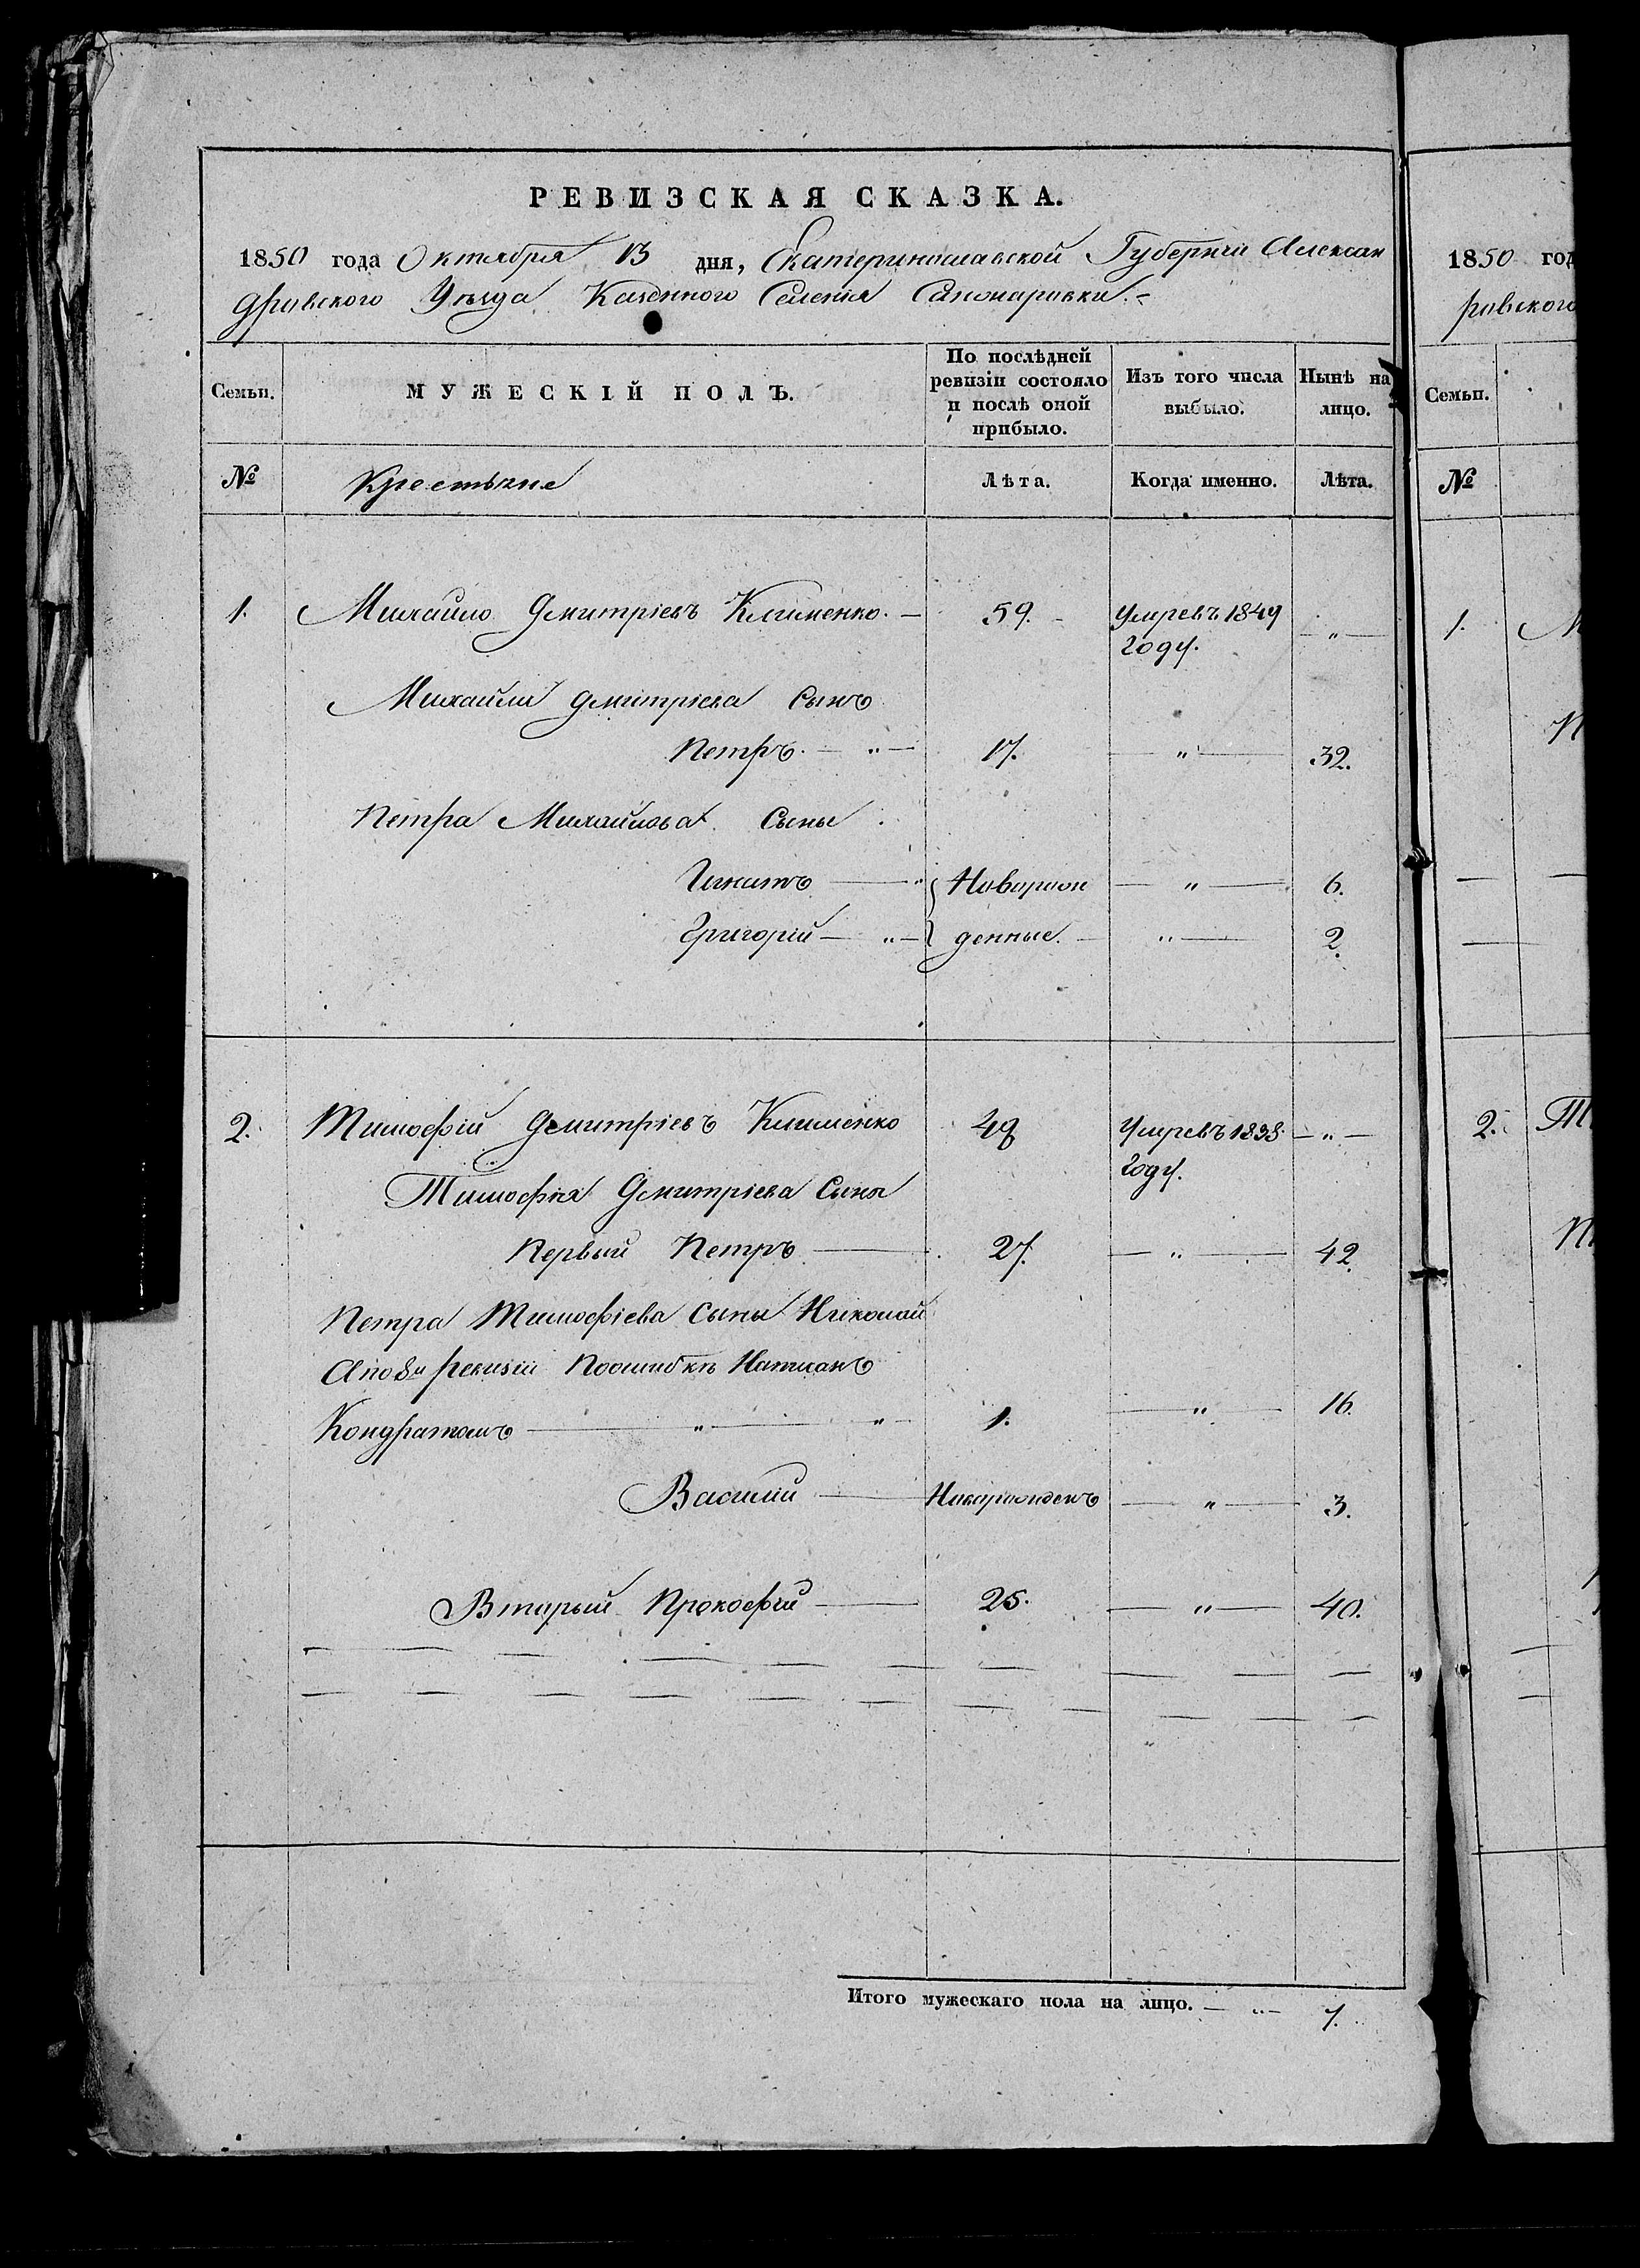 РЕВИЗСКАЯ СКАЗКА.
1850 года Октября 13 дня, Екатеринославской Губернiи Алексан
дровского Уѣзда Казенного Селенiя Санжаровки. -
Семьи. МУЖЕСКIЙ ПОЛЪ. По послѣдней ревизiи состояло и послѣ оной прибыло. Изъ того числа выбыло. Нынѣ на лицо.
№ Крестьяне Лѣта. Когда именно. Лѣта.
1. Михайло Дмитрiевъ Клименко. — 59. - Умревъ 1849 — " —
году.
Михайли Дмитрiева Сынъ
Петръ. — " — 17. — " — 32.
Петра Михайлова Сыны
Игнатъ — " Новорож — " — 6.
Григорiй — " — денные. — " — 2.
2. Тимофiй Дмитрiевъ Клименко 48 Умревъ 1838 — " —
году.
Тимофiя Дмитрiева Сыны
Первый Петръ — 27. — " — 42.
Петра Тимофiева Сыны Николай
Апо 8й ревизiи Поошибкѣ Написанъ
Кондратомъ — " — " — 1. — " — 16.
Василий — Новорожденъ — " — 3.
Вторый Прокофий — 25. — " — 40.
Итого мужескаго пола на лицо. — " — 7.
1850 год
ровского
Семьи.
№
1. М
П
2. Ти
П